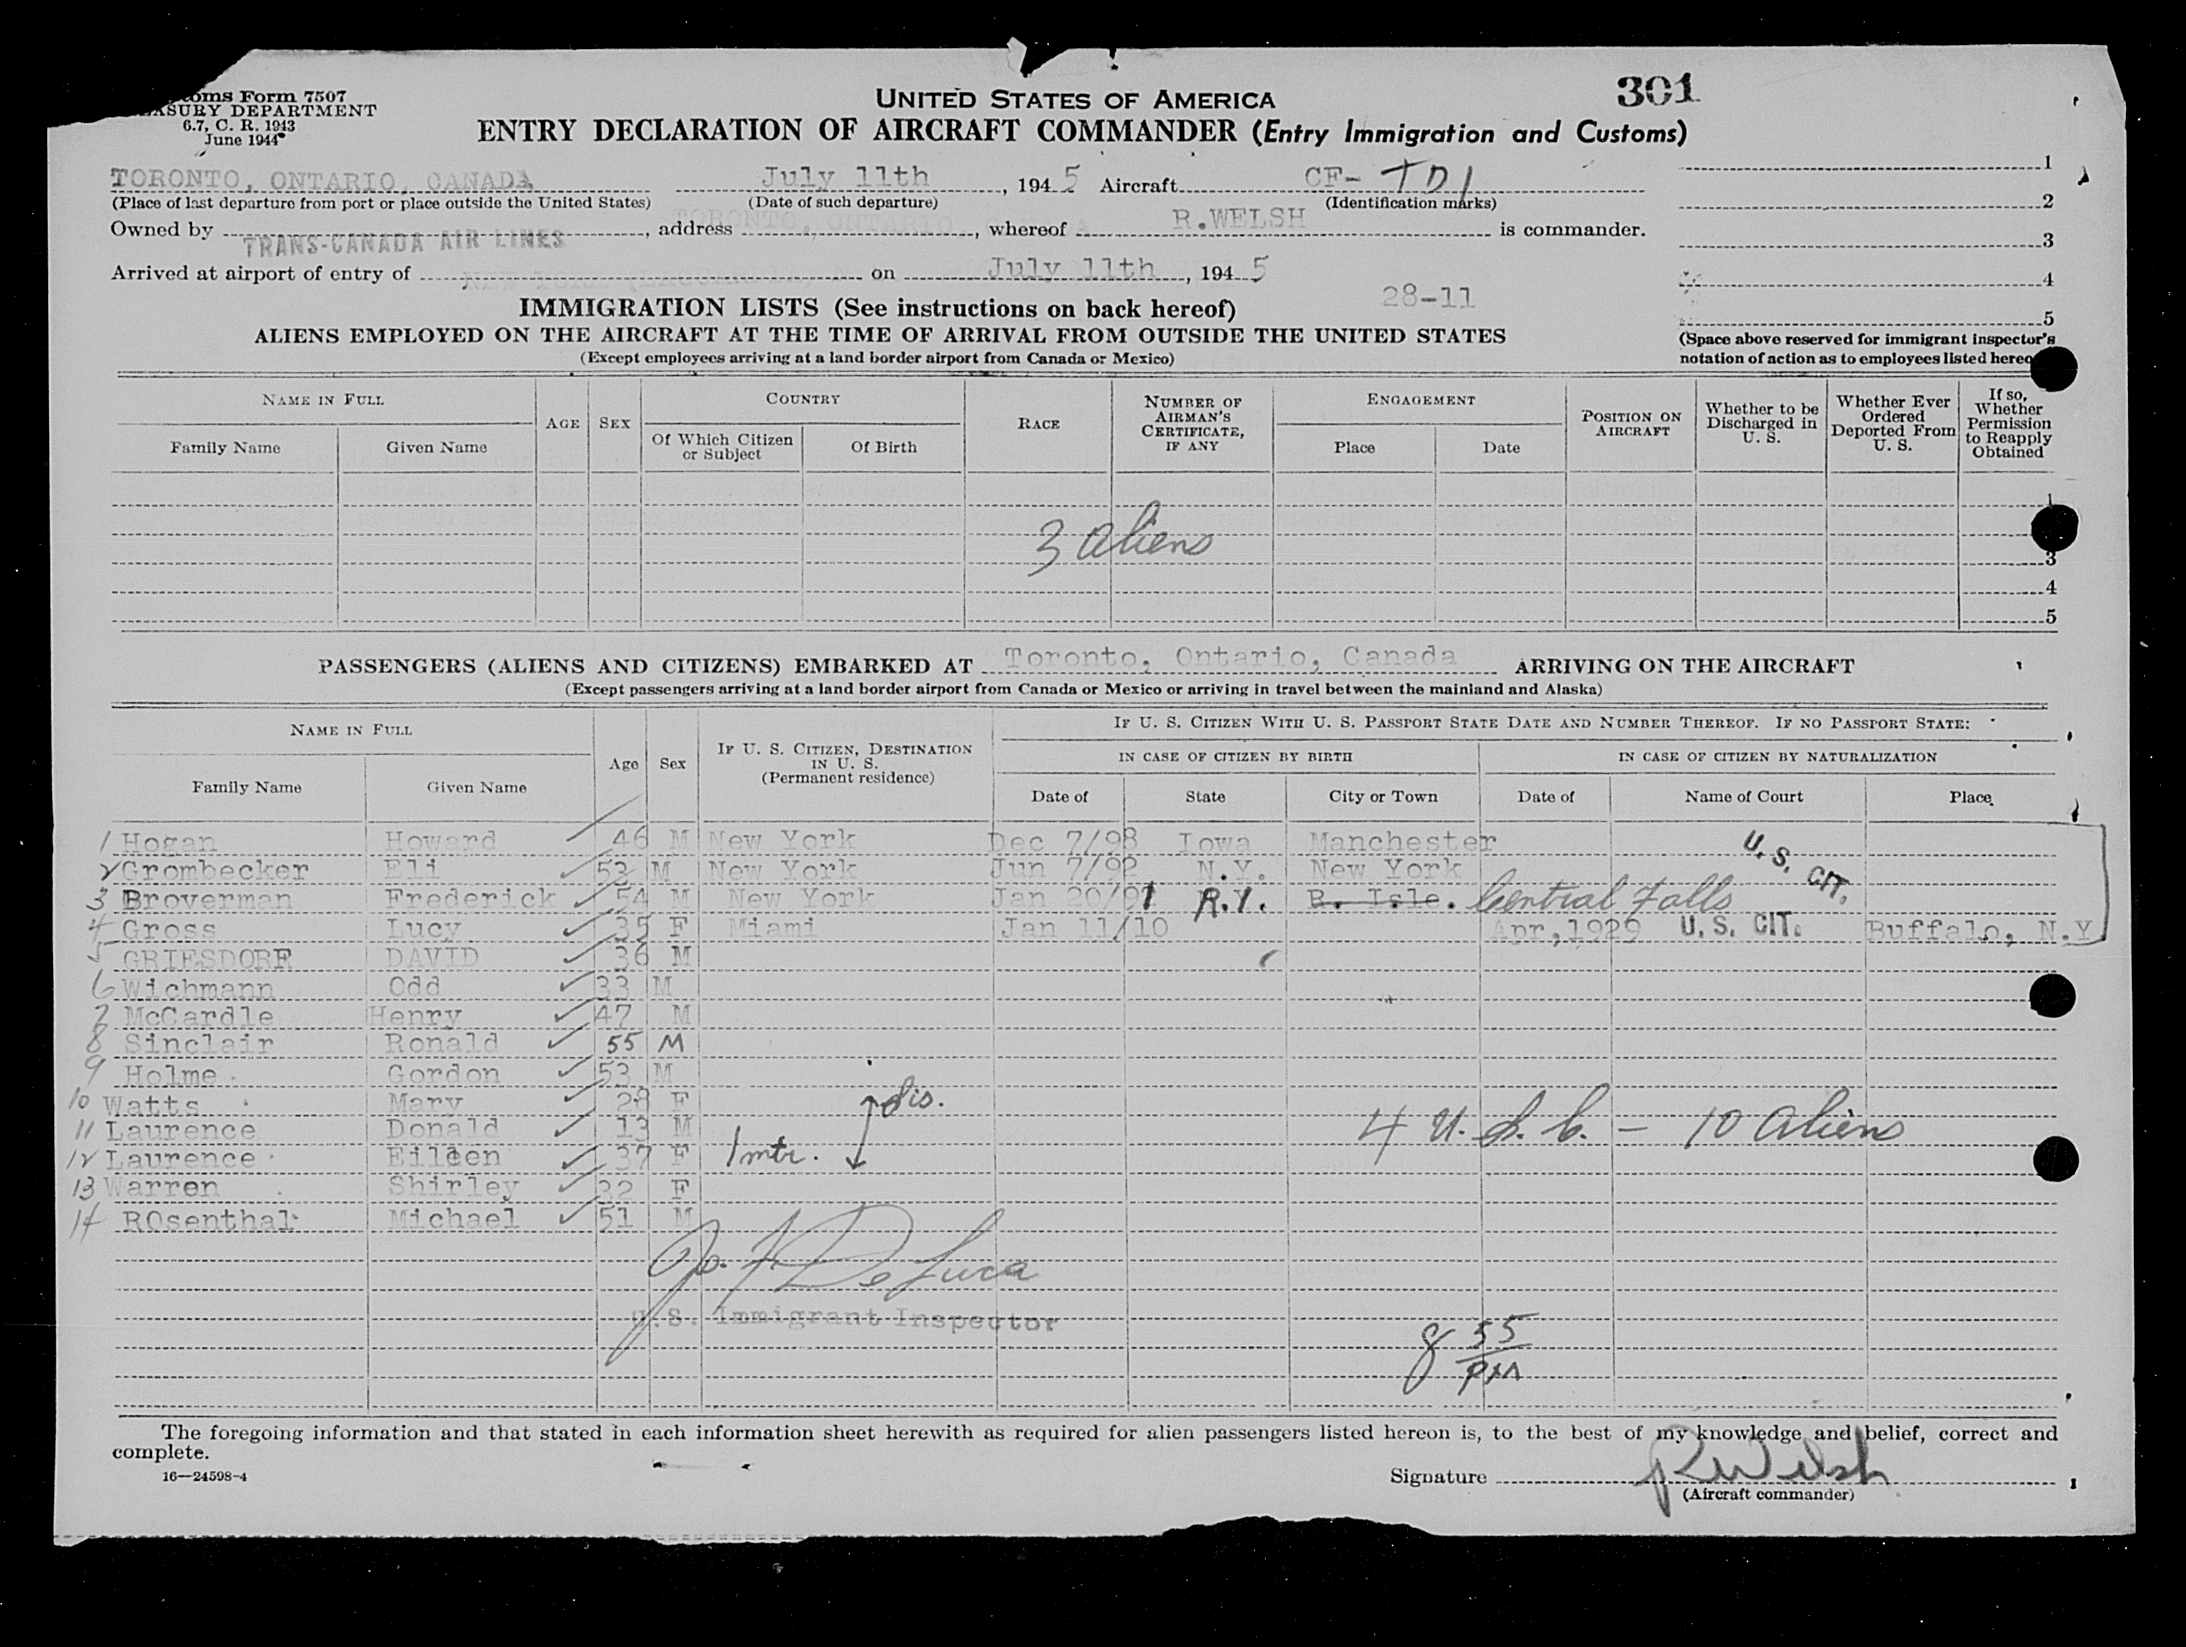 301
oms Form 7507
ASURY DEPARTMENT
6.7, C. R. 1943
June 1944
UNITED STATES OF AMERICA
ENTRY DECLARATION OF AIRCRAFT COMMANDER (Entry Immigration and Customs)
TORONTO, ONTARIO, CANADA July 11th, 1945 Aircraft CF- TDI
(Place of last departure from port or place outside the United States) (Date of such departure) (Identification marks)
Owned by TRANS-CANADA AIR LINES, address TORONTO, ONTARIO, whereof R.WELSH is commander.
Arrived at airport of entry of NEW YORK on July 11th, 1945
1
2
3
4
5
(Space above reserved for immigrant inspector's
notation of action as to employees listed hereo
28-11
IMMIGRATION LISTS (See instructions on back hereof)
ALIENS EMPLOYED ON THE AIRCRAFT AT THE TIME OF ARRIVAL FROM OUTSIDE THE UNITED STATES
(Except employees arriving at a land border airport from Canada or Mexico)
NAME IN FULL
Family Name Given Name
AGE SEX
COUNTRY
Of Which Citizen or Subject Of Birth
RACE
NUMBER OF AIRMAN'S CERTIFICATE, IF ANY
ENGAGEMENT
Place Date
POSITION ON AIRCRAFT
Whether to be Discharged in U. S.
Whether Ever Ordered Deported From U. S.
If so, Whether Permission to Reapply Obtained
1
3 aliens
3
4
5
PASSENGERS (ALIENS AND CITIZENS) EMBARKED AT Toronto, Ontario, Canada ARRIVING ON THE AIRCRAFT
(Except passengers arriving at a land border airport from Canada or Mexico or arriving in travel between the mainland and Alaska)
NAME IN FULL
Family Name Given Name
Age Sex
IF U. S. CITIZEN, DESTINATION IN U. S. (Permanent residence)
IF U. S. CITIZEN WITH U. S. PASSPORT STATE DATE AND NUMBER THEREOF. IF NO PASSPORT STATE:
IN CASE OF CITIZEN BY BIRTH IN CASE OF CITIZEN BY NATURALIZATION
Date of State City or Town Date of Name of Court Place
1 Hogan Howard 46 M New York Dec 7/98 Iowa Manchester U. S. CIT.
2 Grombecker Eli 53 M New York Jun 7/92 N.Y. New York
3 Broverman Frederick 54 M New York Jan 20/91 R.I. R. Isle. Central Falls
4 Gross Lucy 35 F Miami Jan 11/10 Apr,1929 U. S. CIT. Buffalo, N.Y
5 GRIESDORF DAVID 36 M
6 Wichmann Odd 33 M
7 McCardle Henry 47 M
8 Sinclair Ronald 55 M
9 Holme Gordon 53 M
10 Watts Mary 28 F
11 Laurence Donald 13 M
12 Laurence Eileen 37 F 1 mtr.
13 Warren Shirley 32 F
14 ROsenthal Michael 51 M
4 U. S. C. - 10 aliens
U.S. Immigrant Inspector
8 55
pm
The foregoing information and that stated in each information sheet herewith as required for alien passengers listed hereon is, to the best of my knowledge and belief, correct and
complete.
16—24598-4
Signature R Welsh
(Aircraft commander)